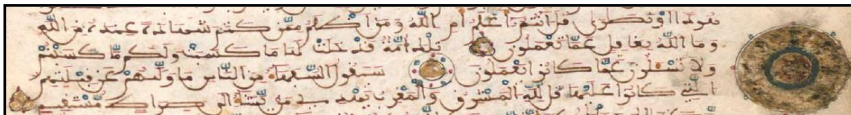 هودا او نصرى قل انتم اعلم ام الله ومن اظلم ممن كتم شهادة عنده من الله
وما الله بغافل عما تعملون تلك امة قد خلت لها ما كسبت ولكم ما كسبتم
ولا تسئلون عما كانوا يعملون سيقول السفهاء من الناس ما وليهم عن قبلتهم
التي كانوا عليها قل لله المشرق والمغرب يهدي من يشاء الى صراط مستقيم